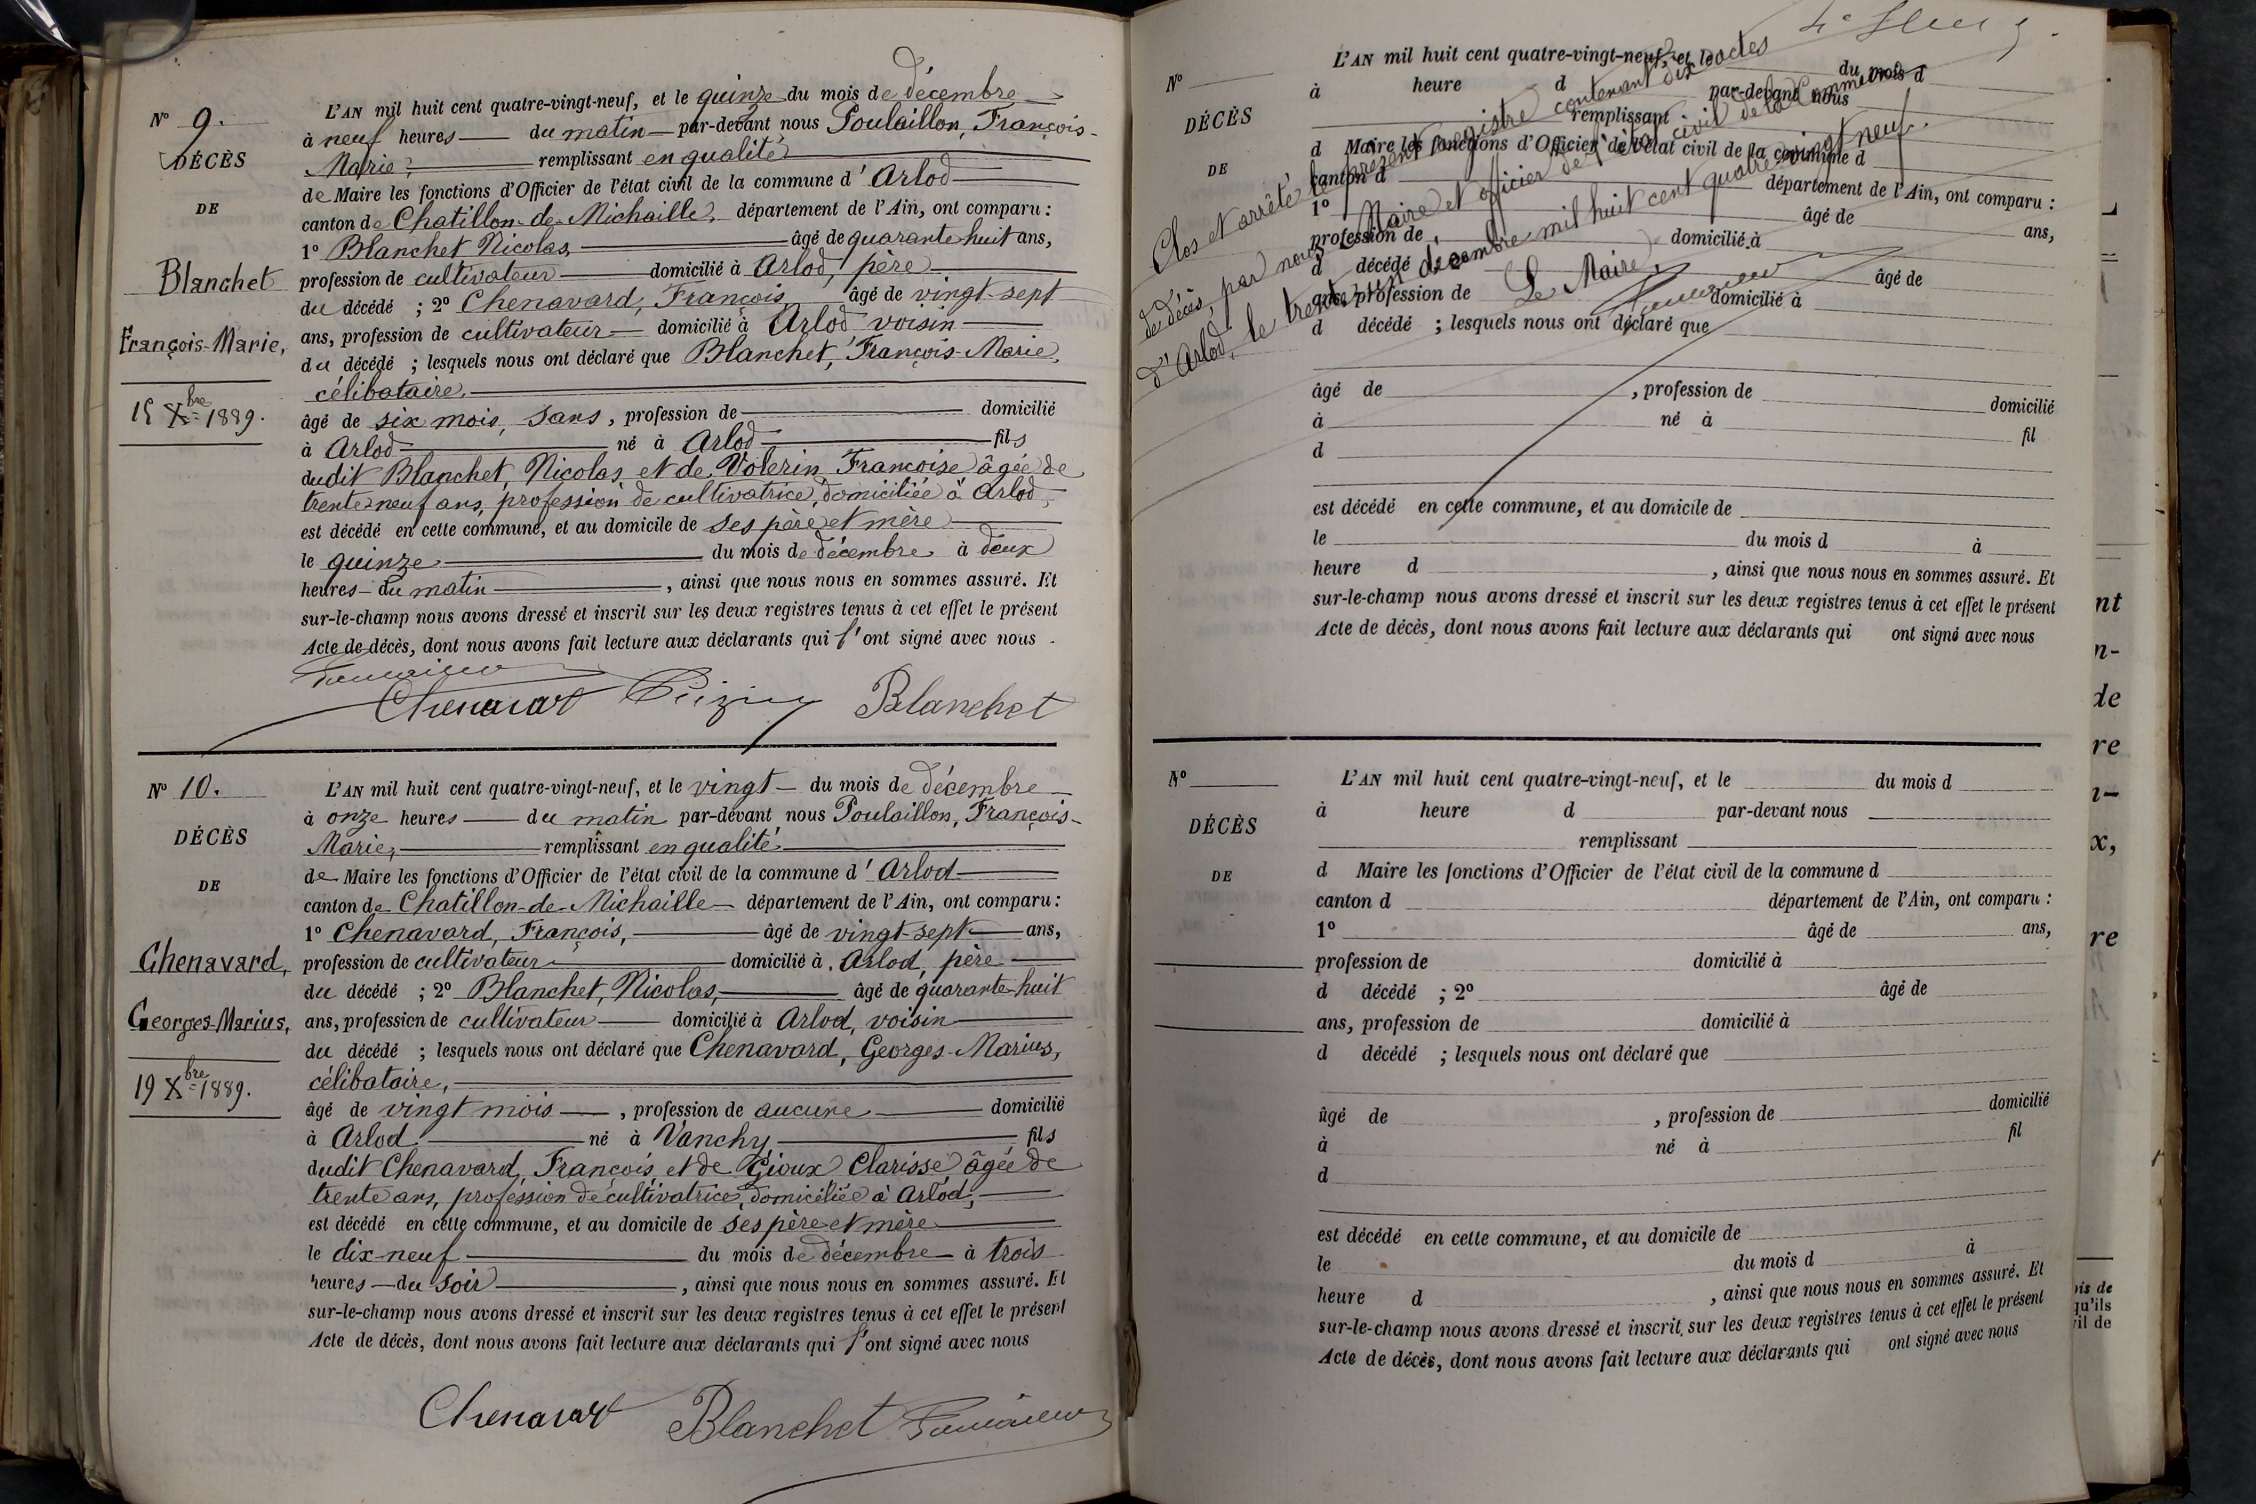 N° 9.
DÉCÈS
DE
Blanchet
François-Marie,
15 Xbre 1889.
L'AN mil huit cent quatre-vingt-neuf, et le quinze du mois de décembre
à neuf heures du matin par-devant nous Poulaillon, François-
Marie, remplissant en qualité
de Maire les fonctions d'Officier de l'état civil de la commune d'Arlod
canton de Chatillon-de-Michaille, département de l'Ain, ont comparu :
1° Blanchet Nicolas, âgé de quarante huit ans,
profession de cultivateur domicilié à Arlod, père
du décédé ; 2° Chenavard, François âgé de vingt-sept
ans, profession de cultivateur domicilié à Arlod voisin
du décédé ; lesquels nous ont déclaré que Blanchet, François-Marie,
célibataire,
âgé de six mois, sans, profession de domicilié
à Arlod né à Arlod fils
dudit Blanchet, Nicolas, et de Volerin, Françoise âgée de
trente neuf ans, profession de cultivatrice, domiciliée à Arlod,
est décédé en cette commune, et au domicile de ses père et mère
le quinze du mois de décembre à deux
heures du matin , ainsi que nous nous en sommes assuré. Et
sur-le-champ nous avons dressé et inscrit sur les deux registres tenus à cet effet le présent
Acte de décès, dont nous avons fait lecture aux déclarants qui l'ont signé avec nous .
Chenavar Blanchet
N° 10.
DÉCÈS
DE
Chenavard,
Georges-Marius,
19 Xbre 1889.
L'AN mil huit cent quatre-vingt-neuf, et le vingt du mois de décembre
à onze heures du matin par-devant nous Poulaillon, François-
Marie, remplissant en qualité
de Maire les fonctions d'Officier de l'état civil de la commune d'Arlod
canton de Chatillon-de-Michaille département de l'Ain, ont comparu :
1° Chenavard, François, âgé de vingt-sept ans,
profession de cultivateur domicilié à Arlod, père
du décédé ; 2° Blanchet, Nicolas, âgé de quarante huit
ans, profession de cultivateur domicilié à Arlod, voisin
du décédé ; lesquels nous ont déclaré que Chenavard, Georges-Marius,
célibataire,
âgé de vingt mois , profession de aucune domicilié
à Arlod né à Vanchy, fils
dudit Chenavard, François, et de Gioux Clarisse âgée de
trente ans, profession de cultivatrice, domiciliée à Arlod,
est décédé en cette commune, et au domicile de ses père et mère
le dix-neuf du mois de décembre à trois
heures du soir , ainsi que nous nous en sommes assuré. Et
sur-le-champ nous avons dressé et inscrit sur les deux registres tenus à cet effet le présent
Acte de décès, dont nous avons fait lecture aux déclarants qui l'ont signé avec nous
Chenavar Blanchet
N°
DÉCÈS
DE
L'AN mil huit cent quatre-vingt-neuf, et le du mois d
à heure d par-devant nous
remplissant
d Maire les fonctions d'Officier de l'état civil de la commune d
canton d département de l'Ain, ont comparu :
1° âgé de ans,
profession de domicilié à
d décédé âgé de
ans, profession de domicilié à
d décédé ; lesquels nous ont déclaré que
âgé de , profession de domicilié
à né à fil
d
est décédé en cette commune, et au domicile de
le du mois d à
heure d , ainsi que nous nous en sommes assuré. Et
sur-le-champ nous avons dressé et inscrit sur les deux registres tenus à cet effet le présent
Acte de décès, dont nous avons fait lecture aux déclarants qui ont signé avec nous
Clos et arrêté le présent registre contenant dix actes
de décès, par nous, Maire et officier de l'état civil de la Commune
d'Arlod, le trente un décembre mil huit cent quatre vingt neuf.
Le Maire,
N°
DÉCÈS
DE
L'AN mil huit cent quatre-vingt-neuf, et le du mois d
à heure d par-devant nous
remplissant
d Maire les fonctions d'Officier de l'état civil de la commune d
canton d département de l'Ain, ont comparu :
1° âgé de ans,
profession de domicilié à
d décédé ; 2° âgé de
ans, profession de domicilié à
d décédé ; lesquels nous ont déclaré que
âgé de , profession de domicilié
à né à fil
d
est décédé en cette commune, et au domicile de
le du mois d à
heure d , ainsi que nous nous en sommes assuré. Et
sur-le-champ nous avons dressé et inscrit sur les deux registres tenus à cet effet le présent
Acte de décès, dont nous avons fait lecture aux déclarants qui ont signé avec nous